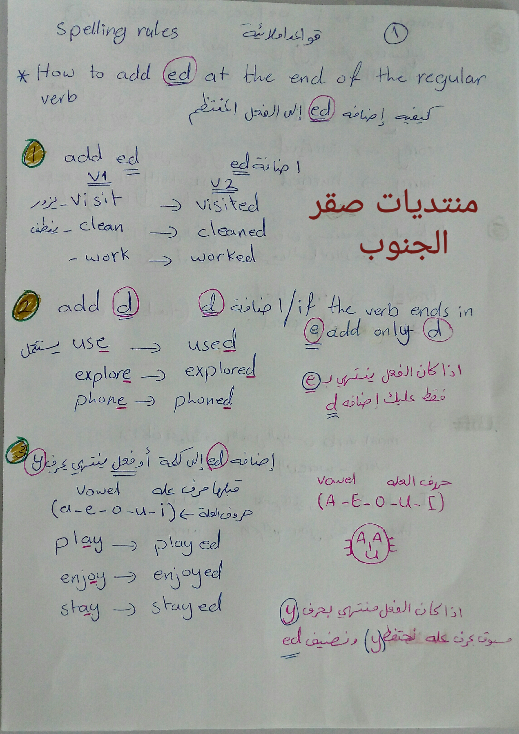 spelling rules قواعد املائية ①
* How to add ed at the end of the regular
verb
كيفيه إضافه ed إلى الفعل المنتظم
1 add ed اضافة ed
V1 V2
يزور - visit → visited
ينظف - clean → cleaned
- work → worked
منتديات صقر
الجنوب
2 add d اضافة d / if the verb ends in
e add only d
يستعمل use → used
explore → explored
phone → phoned
اذا كان الفعل ينتهي بـ e
فقط عليك إضافه d
3 إضافه ed إلى كلمة أو فعل ينتهي بحرف y
قبلها حرف عله vowel
(a-e-o-u-i) ← حروف العلة
play → played
enjoy → enjoyed
stay → stayed
حروف العله vowel
(A-E-O-U-I)
A A
I
U
اذا كان الفعل منتهي بحرف y
مسبوق بحرف عله نحتفظ (y) ونضيف ed